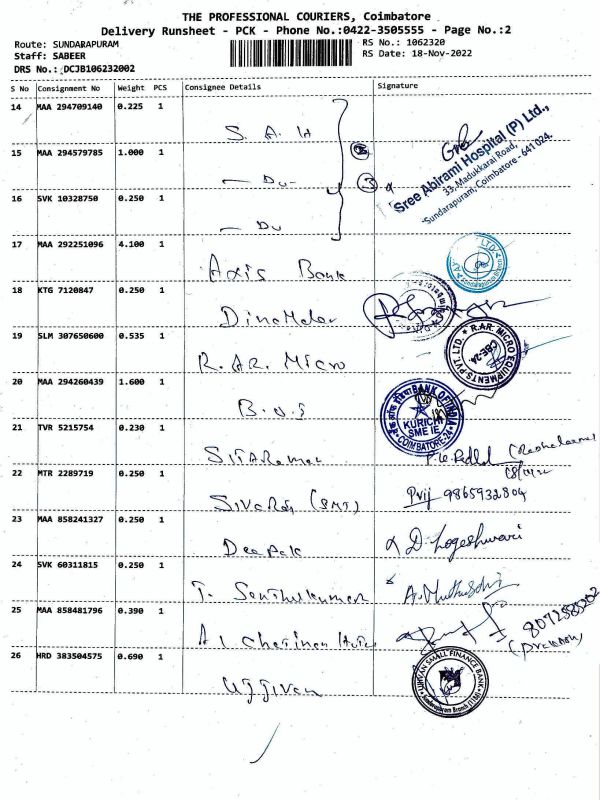 THE PROFESSIONAL COURIERS, Coimbatore
Delivery Runsheet - PCK - Phone No.:0422-3505555 - Page No.:2
Route: SUNDARAPURAM
Staff: SABEER
DRS No.: DCJB106232002
RS No.: 1062320
RS Date: 18-Nov-2022
S No Consignment No Weight PCS Consignee Details Signature
14 MAA 294709140 0.225 1
S. A. H
15 MAA 294579785 1.000 1
- Du -
3
Sree Abirami Hospital (P) Ltd.,
33, Madukkarai Road,
Sundarapuram, Coimbatore - 641 024.
16 SVK 10328750 0.250 1
- Du
17 MAA 292251096 4.100 1
Axis Bank
18 KTG 7120847 0.250 1
19 SLM 307650600 0.535 1
R. AR. Micro
R.A.R. MICRO EQUIPMENTS PVT. LTD. ★
CBE-24
20 MAA 294260439 1.600 1
B.O.I
BANK OF INDIA
KURICHI
SME IE
COIMBATORE-24
21 TVR 5215754 0.230 1
Sitaraman
22 MTR 2289719 0.250 1
Sivaraj (SMT)
Prij 9865932804
23 MAA 858241327 0.250 1
Deepak
D. Logeshwari
24 SVK 60311815 0.250 1
T. Senthilkumar
25 MAA 858481796 0.390 1
26 HRD 383504575 0.690 1
Ujjivan
UJJIVAN SMALL FINANCE BANK
Sundarapuram Branch